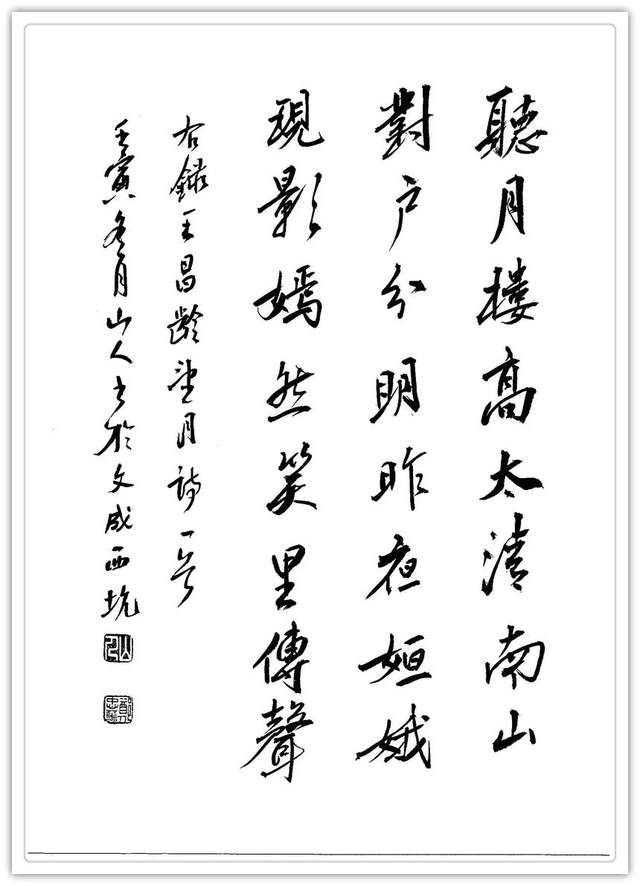 聽月樓高太清南山
對戶分明昨夜姮娥
現影嫣然笑里傳聲
右錄王昌齡望月詩一首
壬寅冬月山人書於文成西坑
山人